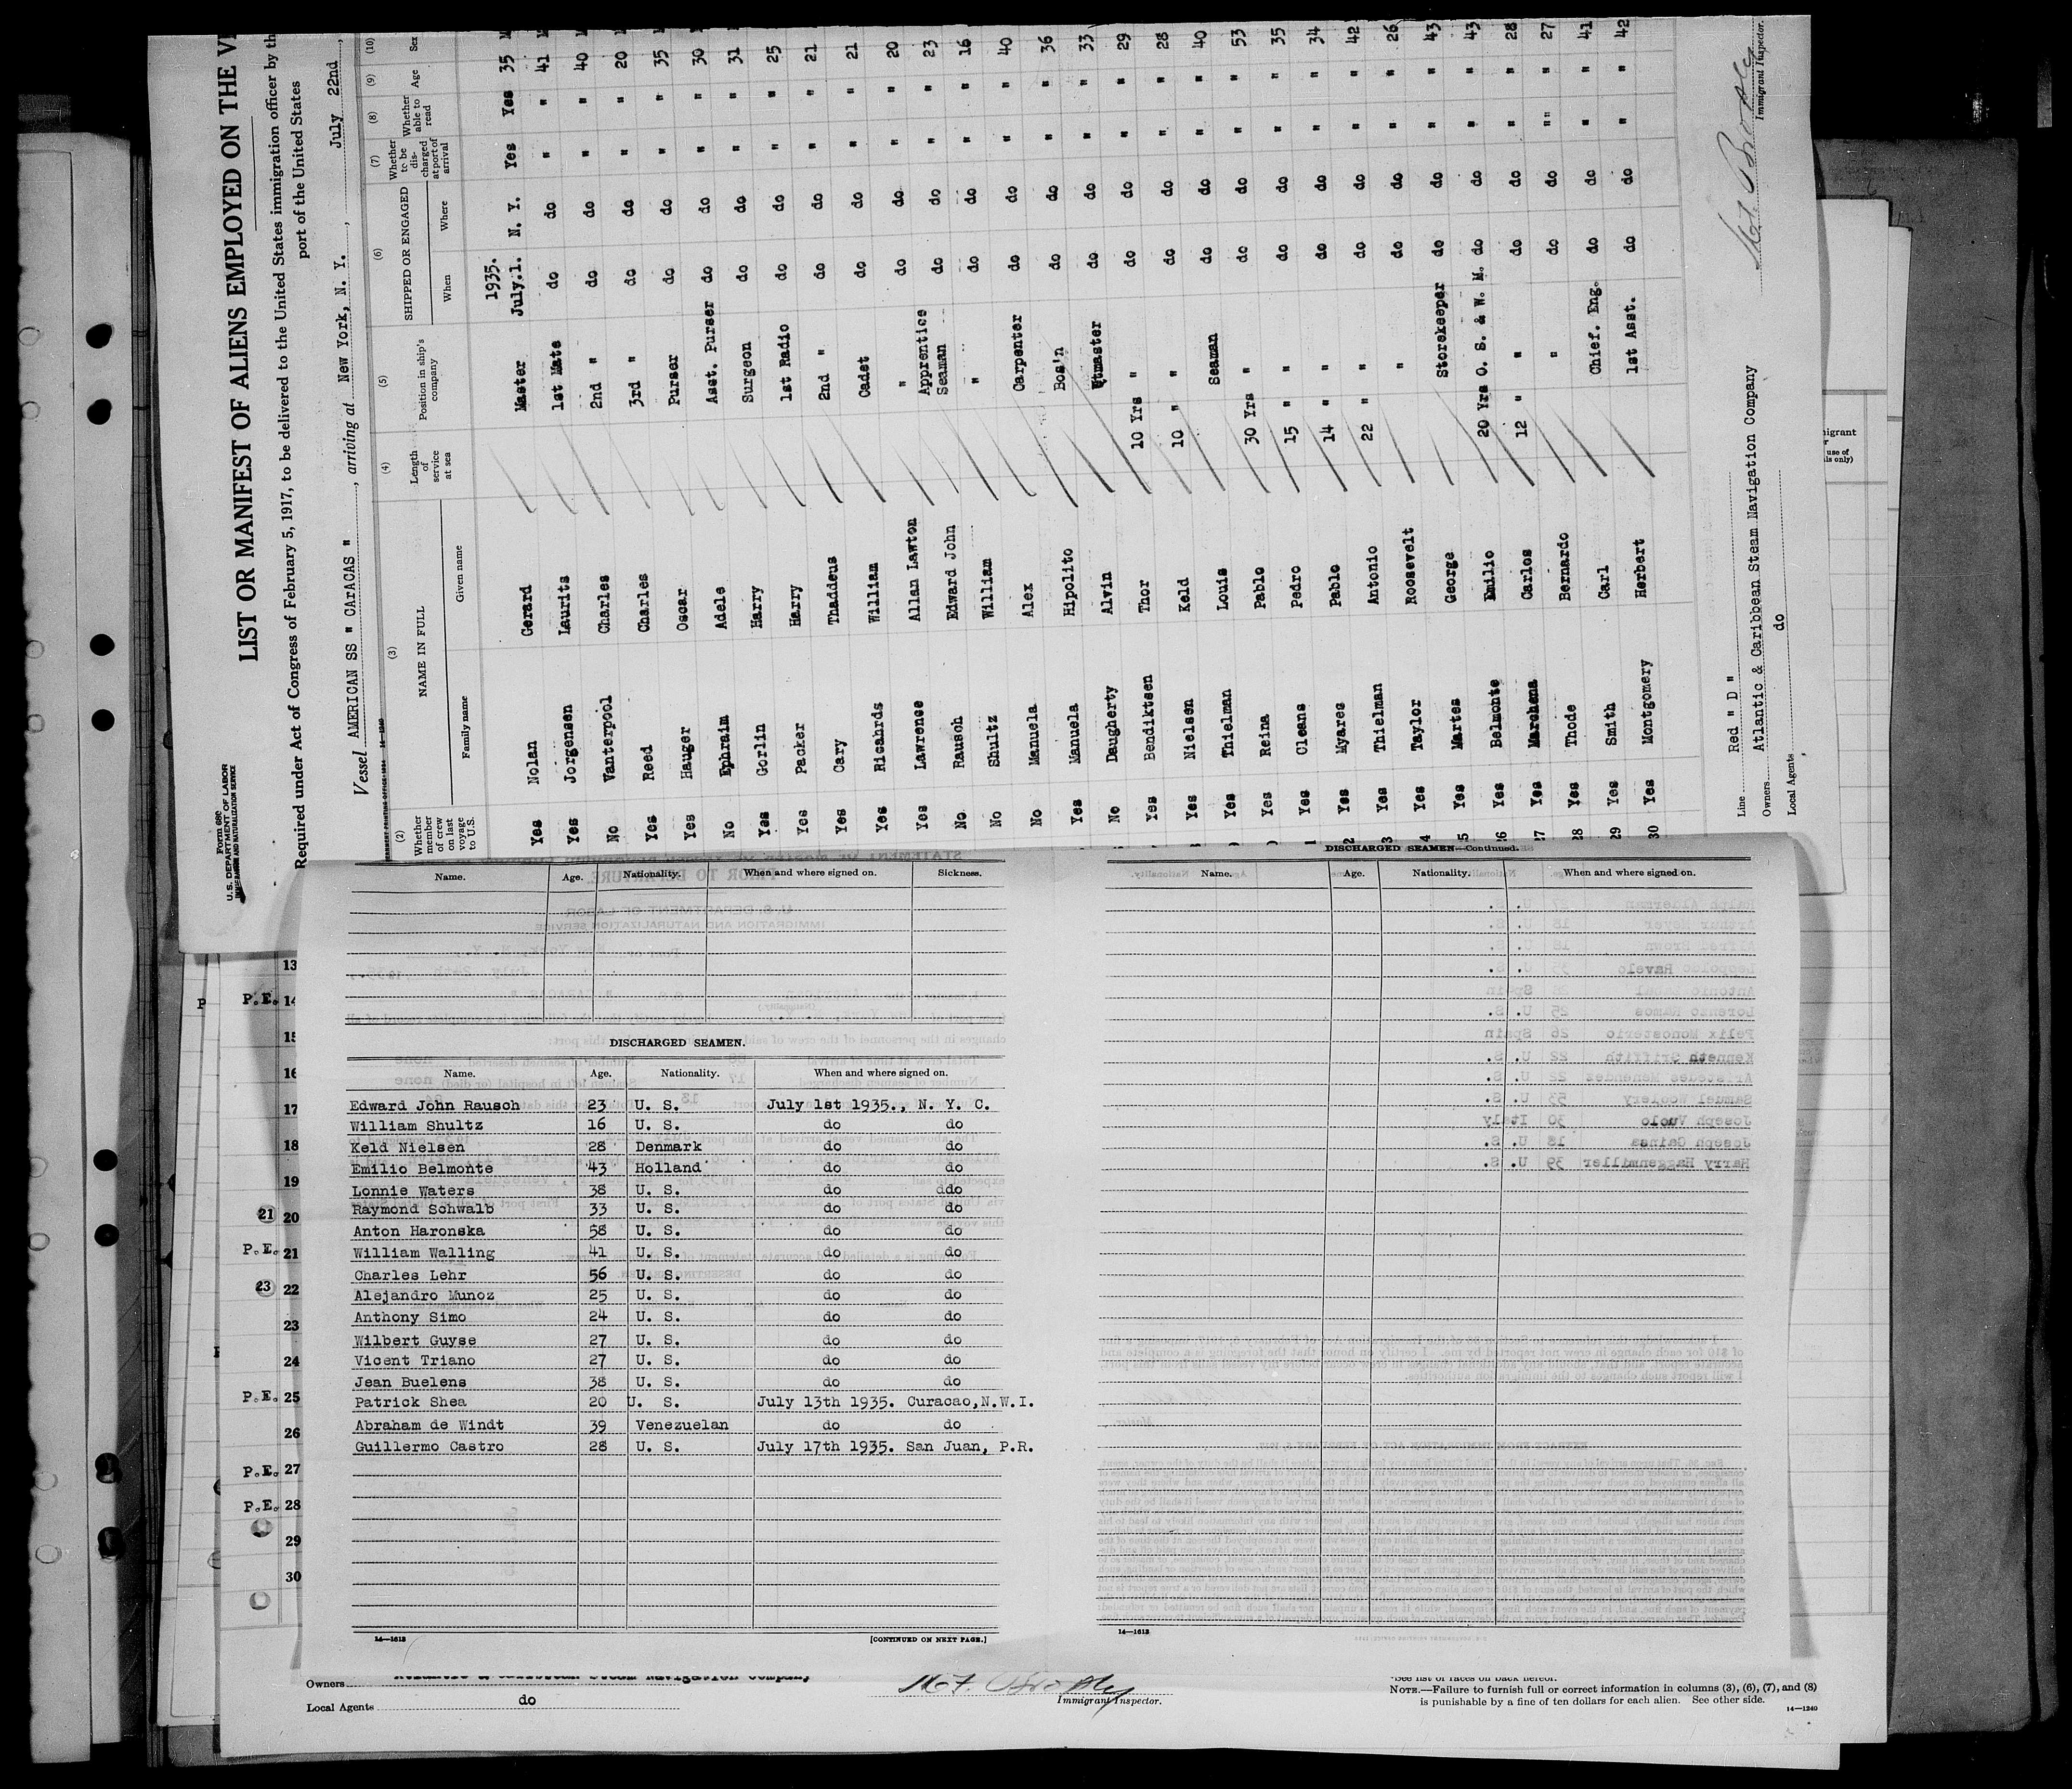 Form 680
U. S. DEPARTMENT OF LABOR
IMMIGRATION AND NATURALIZATION SERVICE
LIST OR MANIFEST OF ALIENS EMPLOYED ON THE
Required under Act of Congress of February 5, 1917, to be delivered to the United States immigration officer by th
port of the United States
Vessel AMERICAN SS " CARACAS ", arriving at New York, N. Y., July 22nd,
(2) (3) (4) (5) (6) (7) (8) (9) (10)
Whether member of crew on last voyage to U.S. NAME IN FULL Length of service at sea Position in ship's company SHIPPED OR ENGAGED Whether to be discharged at port of arrival Whether able to read Age Sex
Family name Given name When Where
1935.
Yes Nolan Gerard Master July.1. N. Y. Yes Yes 35
Yes Jorgensen Laurits 1st Mate do do " " 41
No Vanterpool Charles 2nd " do do " " 40
Yes Reed Charles 3rd " do do " " 20
Yes Hauger Oscar Purser do do " " 35
No Ephraim Adele Asst. Purser do do " " 30
Yes Gorlin Harry Surgeon do do " " 31
Yes Packer Harry 1st Radio do do " " 25
Yes Cary Thaddeus 2nd " do do " " 21
Yes Ricahrds William Cadet do do " " 21
Yes Lawrence Allan Lawton " do do " " 20
No Rausch Edward John Apprentice Seaman do do " " 23
No Shultz William " do do " " 16
No Manuela Alex Carpenter do do " " 40
Yes Manuela Hipolito Bos'n do do " " 36
No Daugherty Alvin Qtmaster do do " " 33
Yes Bendiktsen Thor 10 Yrs " do do " " 29
Yes Nielsen Keld 10 " " do do " " 28
Yes Thielman Louis Seaman do do " " 40
Yes Reina Pablo 30 Yrs " do do " " 53
Yes Cleans Pedro 15 " " do do " " 35
Yes Myares Pablo 14 " " do do " " 34
Yes Thielman Antonio 22 " " do do " " 42
Yes Taylor Roosevelt " do do " " 26
Yes Martes George Storekeeper do do " " 43
Yes Belmonte Emilio 20 Yrs O. S. & W. M. do do " " 43
Yes Marchena Carlos 12 " " do do " " 28
Yes Thode Bernardo " do do "" " 27
Yes Smith Carl Chief. Eng. do do " " 41
30 Yes Montgomery Herbert 1st Asst. do do " " 42
Line Red " D "
Owners Atlantic & Caribbean Steam Navigation Company
Local Agents do
Immigrant Inspector.
Name. Age. Nationality. When and where signed on. Sickness.
DISCHARGED SEAMEN.
Name. Age. Nationality. When and where signed on.
Edward John Rausch 23 U. S. July 1st 1935., N. Y. C.
William Shultz 16 U. S. do do
Keld Nielsen 28 Denmark do do
Emilio Belmonte 43 Holland do do
Lonnie Waters 38 U. S. do ddo
Raymond Schwalb 33 U. S. do do
Anton Haronska 58 U. S. do do
William Walling 41 U. S. do do
Charles Lehr 56 U. S. do do
Alejandro Munoz 25 U. S. do do
Anthony Simo 24 U. S. do do
Wilbert Guyse 27 U. S. do do
Vicent Triano 27 U. S. do do
Jean Buelens 38 U. S. do do
Patrick Shea 20 U. S. July 13th 1935. Curacao,N.W.I.
Abraham de Windt 39 Venezuelan do do
Guillermo Castro 28 U. S. July 17th 1935. San Juan, P.R.
14—1613 [CONTINUED ON NEXT PAGE.]
DISCHARGED SEAMEN—Continued.
Name. Age. Nationality. When and where signed on.
14—1613
13
P.E. 14
15
16
17
18
19
21 20
P.E. 21
23 22
23
24
P.E. 25
26
P.E. 27
P.E. 28
29
30
Owners Atlantic & Caribbean Steam Navigation Company
Local Agents do
Immigrant Inspector.
*See list of races on back hereof.
NOTE.—Failure to furnish full or correct information in columns (3), (6), (7), and (8)
is punishable by a fine of ten dollars for each alien. See other side.
14—1240